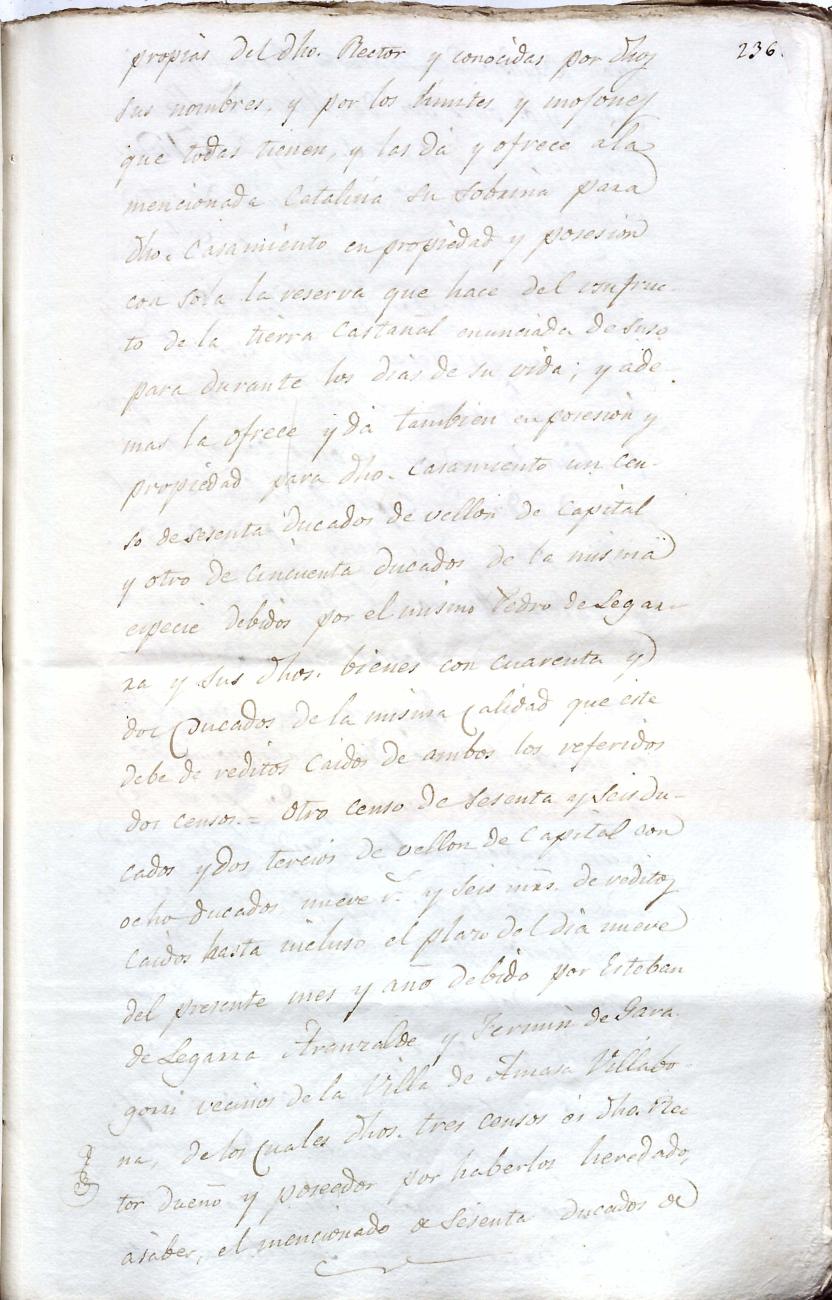 236.
propias del dho. Rector y conocidas por dhos
sus nombres, y por los limites y mojones
que todas tienen, y las dá y ofrece á la
mencionada Catalina su sobrina para
dho. Casamiento en propiedad y posesion
con sola la reserva que hace del usufruc-
to de la tierra Castañal enunciada de suso
para durante los dias de su vida; y ade-
mas la ofrece y dá tambien en posesion y
propiedad para dho. Casamiento un Cen-
so de sesenta Ducados de vellon de Capital
y otro de cincuenta ducados de la misma
especie debidos por el mismo Pedro de Legar-
ra y sus dhos. bienes con cuarenta y
dos Ducados de la misma Calidad que este
debe de reditos Caidos de ambos los referidos
dos censos.= Otro censo de Sesenta y Seis Du-
cados y dos tercios de vellon de Capital con
ocho Ducados nueve rs. y Seis mrs. de reditos
Caidos hasta incluso el plazo del dia nueve
del presente mes y año debido por Esteban
de Legarra Aranzalde y Fermin de Gara-
gorri vecinos de la Villa de Amasa Villabo-
na, de los Cuales dhos. tres censos es dho. Rec-
tor dueño y poseedor por haberlos heredado,
asaber, el mencionado de Sesenta Ducados de